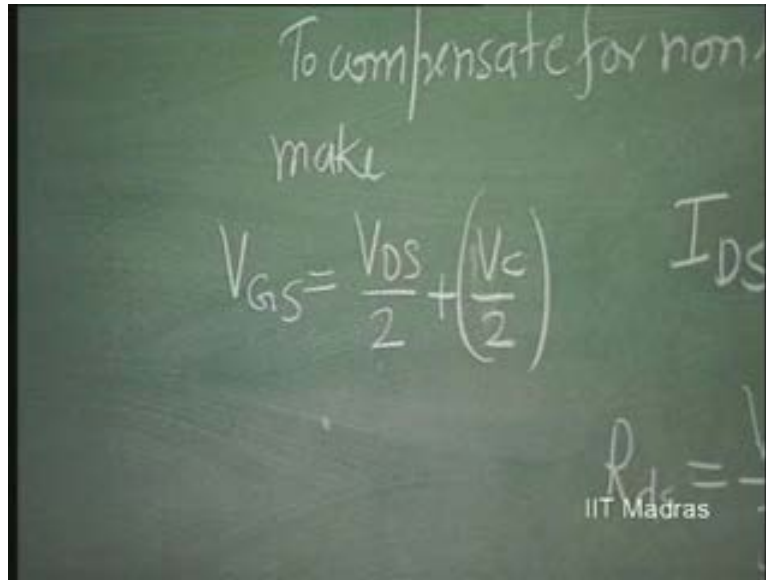 To compensate for non
make
V_GS = V_DS/2 + (V_C/2)
I_DS
R_ds =
IIT Madras